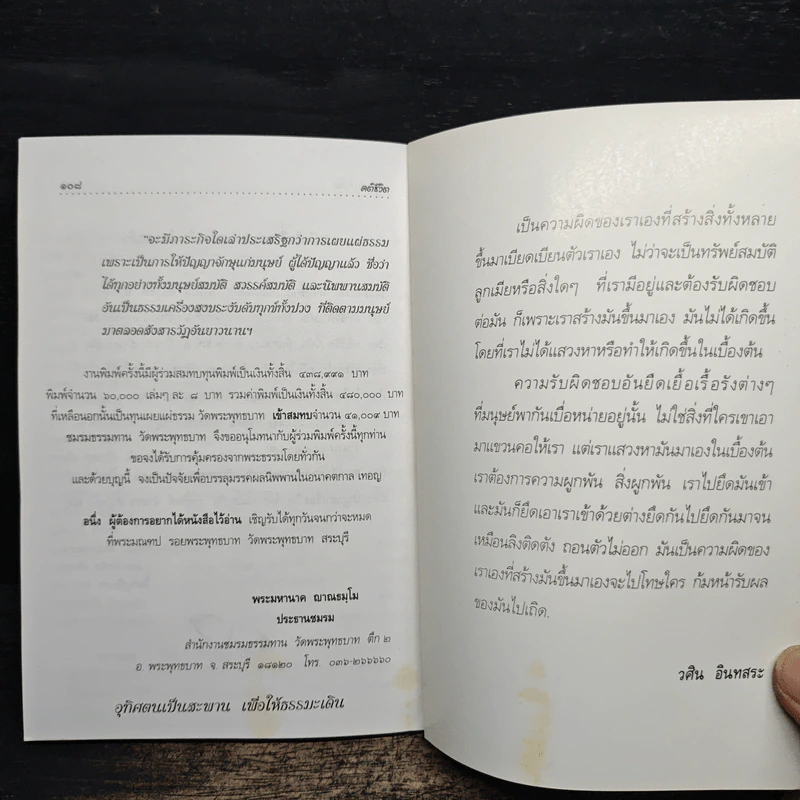 ๑๐๘ คติชีวิต
"จะมีภาระกิจใดเล่าประเสริฐกว่าการเผยแผ่ธรรม
เพราะเป็นการให้ปัญญาจักษุแก่มนุษย์ ผู้ได้ปัญญาแล้ว ชื่อว่า
ได้ทุกอย่างทั้งมนุษย์สมบัติ สวรรค์สมบัติ และนิพพานสมบัติ
อันเป็นธรรมเครื่องสงบระงับดับทุกข์ทั้งปวง ที่ติดตามมนุษย์
มาตลอดสังสารวัฏอันยาวนานฯ
งานพิมพ์ครั้งนี้มีผู้ร่วมสมทบทุนพิมพ์เป็นเงินทั้งสิ้น ๔๓๘,๙๙๑ บาท
พิมพ์จำนวน ๖๐,๐๐๐ เล่มๆ ละ ๘ บาท รวมค่าพิมพ์เป็นเงินทั้งสิ้น ๔๘๐,๐๐๐ บาท
ที่เหลือนอกนั้นเป็นทุนเผยแผ่ธรรม วัดพระพุทธบาท เข้าสมทบจำนวน ๔๑,๐๐๙ บาท
ชมรมธรรมทาน วัดพระพุทธบาท จึงขออนุโมทนากับผู้ร่วมพิมพ์ครั้งนี้ทุกท่าน
ขอจงได้รับการคุ้มครองจากพระธรรมโดยทั่วกัน
และด้วยบุญนี้ จงเป็นปัจจัยเพื่อบรรลุมรรคผลนิพพานในอนาคตกาล เทอญ
อนึ่ง ผู้ต้องการอยากได้หนังสือไว้อ่าน เชิญรับได้ทุกวันจนกว่าจะหมด
ที่พระมณฑป รอยพระพุทธบาท วัดพระพุทธบาท สระบุรี
พระมหานาค ญาณธมฺโม
ประธานชมรม
สำนักงานชมรมธรรมทาน วัดพระพุทธบาท ตึก ๒
อ. พระพุทธบาท จ. สระบุรี ๑๘๑๒๐ โทร. ๐๓๖-๒๖๖๖๖๐
อุทิศตนเป็นสะพาน เพื่อให้ธรรมะเดิน
เป็นความผิดของเราเองที่สร้างสิ่งทั้งหลาย
ขึ้นมาเบียดเบียนตัวเราเอง ไม่ว่าจะเป็นทรัพย์สมบัติ
ลูกเมียหรือสิ่งใดๆ ที่เรามีอยู่และต้องรับผิดชอบ
ต่อมัน ก็เพราะเราสร้างมันขึ้นมาเอง มันไม่ได้เกิดขึ้น
โดยที่เราไม่ได้แสวงหาหรือทำให้เกิดขึ้นในเบื้องต้น
ความรับผิดชอบอันยืดเยื้อเรื้อรังต่างๆ
ที่มนุษย์พากันเบื่อหน่ายอยู่นั้น ไม่ใช่สิ่งที่ใครเขาเอา
มาแขวนคอให้เรา แต่เราแสวงหามันมาเองในเบื้องต้น
เราต้องการความผูกพัน สิ่งผูกพัน เราไปยึดมันเข้า
และมันก็ยึดเอาเราเข้าด้วยต่างยึดกันไปยึดกันมาจน
เหมือนลิงติดตัง ถอนตัวไม่ออก มันเป็นความผิดของ
เราเองที่สร้างมันขึ้นมาเองจะไปโทษใคร ก้มหน้ารับผล
ของมันไปเถิด.
วศิน อินทสระ